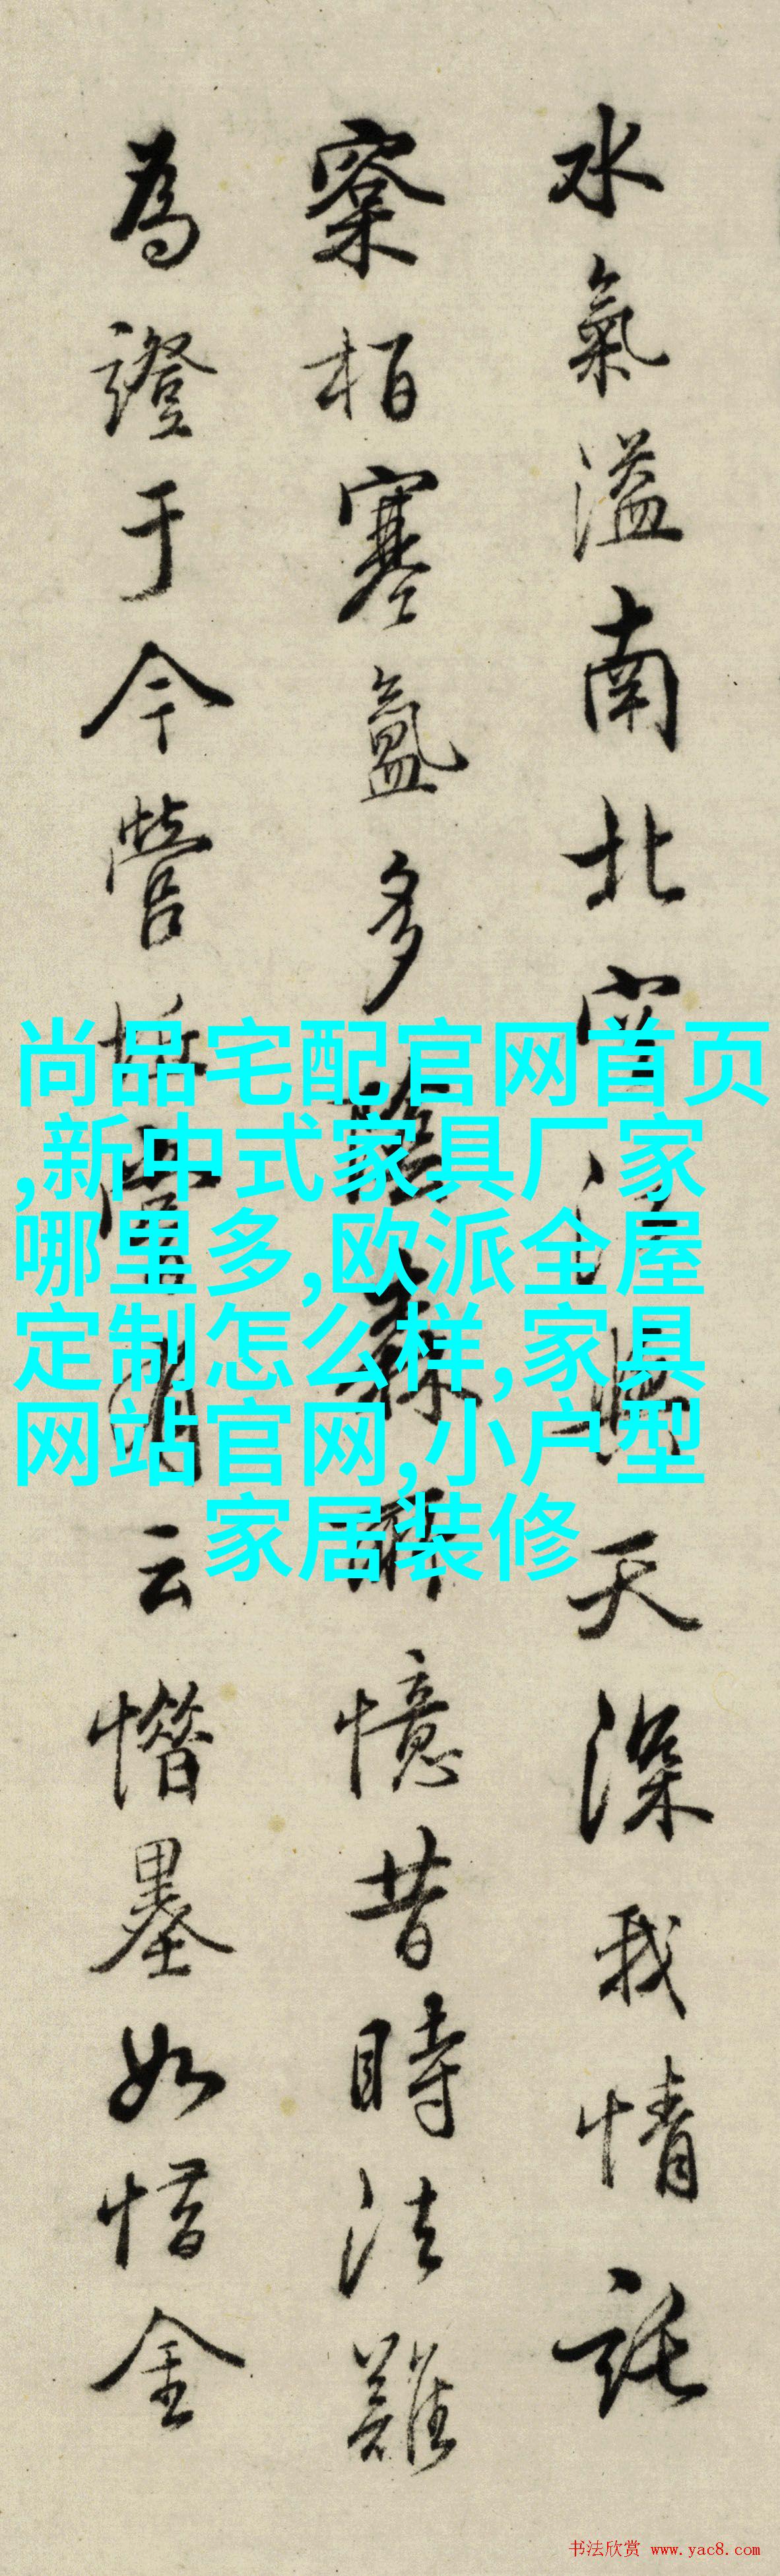 水氣溢南北
天深我情託
寀栢寒氲多
憶昔時法難
為證于今營
云惜墨如惜金
尚品宅配官网首页
,新中式家具厂家
哪里多,欧派全屋
定制怎么样,家具
网站官网,小户型
家居装修
书法欣赏 www.yac8.com